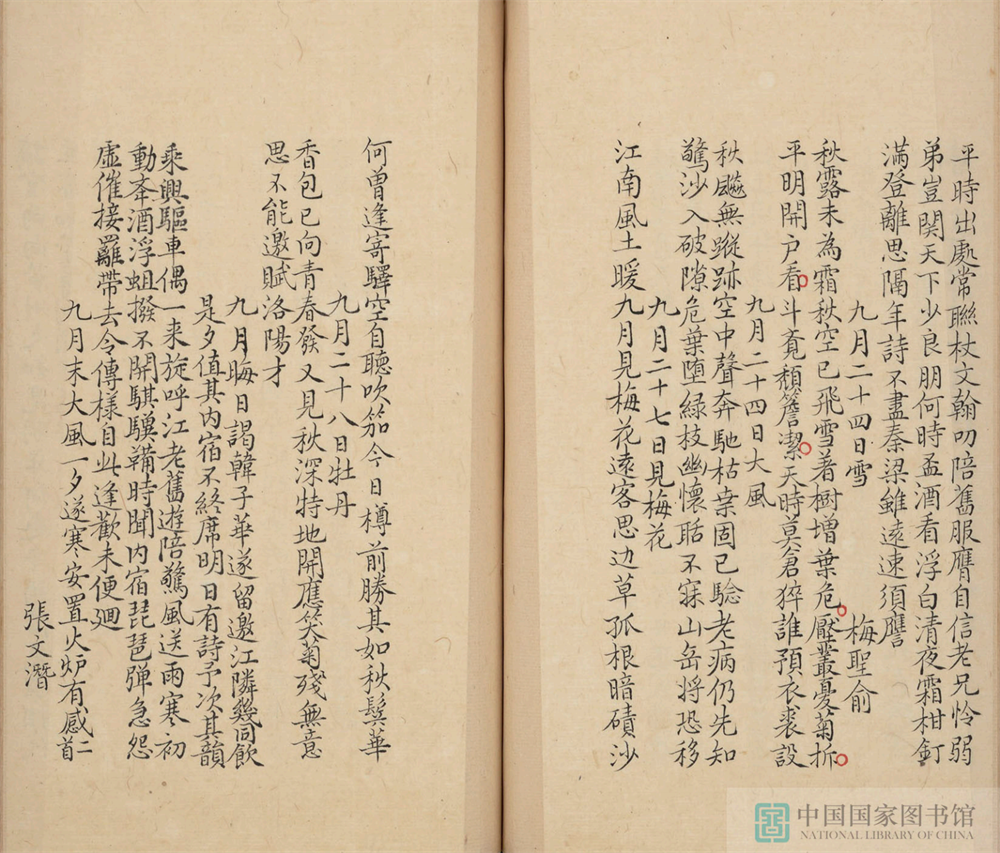 平時出處常聯杖文翰叨陪舊服膺自信老兄怜弱
弟豈関天下少良朋何時盃酒看浮白清夜霜柑飣
滿登離思隔年詩不盡秦梁雖遠速須譍
九月二十四日雪　梅聖俞
秋露未為霜秋空已飛雪著樹增葉危壓叢憂菊折
平明開户看斗覔頽簷潔天時莫倉猝誰預衣裘設
九月二十四日大風
秋飈無蹤跡空中聲奔馳枯桒固已騐老病仍先知
驚沙入破隙危葉堕緑枝幽懷聒不寐山岳將恐移
九月二十七日見梅花
江南風土暖九月見梅花遠客思边草孤根暗磧沙
何曽逢寄驛空自聽吹笳今日樽前勝其如秋鬂華
九月二十八日牡丹
香包已向青春發又見秋深特地開應笑菊殘無意
思不能邀賦洛陽才
九月晦日謁韓子華遂留邀江隣幾同飲
是夕值其内宿不終席明日有詩予次其韻
乘興驅車偶一来旋呼江老舊遊陪驚風送雨寒初
動夲酒浮蛆撥不開騏驥鞴時聞内宿琵琶弹急怨
虚催接䍦帶去令傳様自此逢歡未便廻
九月末大風一夕遂寒安置火炉有感二首
張文潛
中国国家图书馆
NATIONAL LIBRARY OF CHINA